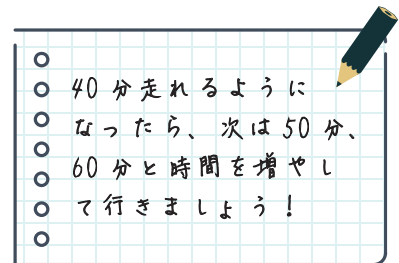 40分走れるように
なったら、次は50分、
60分と時間を増やし
て行きましょう！